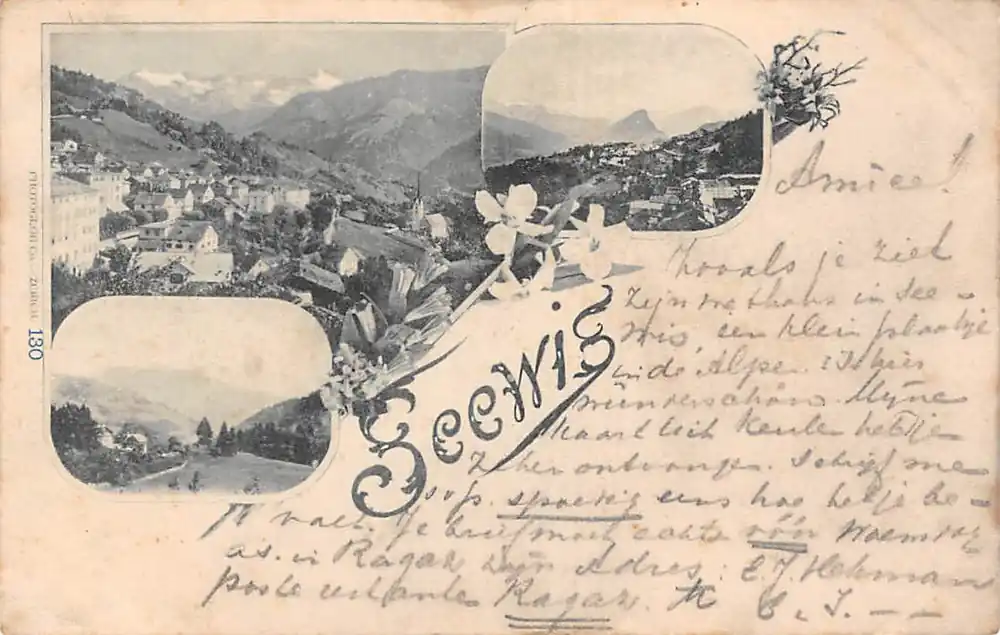 PHOTOGLOB CO. ZÜRICH
130
Seewis
Amice!
Zooals je ziet
zijn we thans in See-
wis, een klein plaatsje
in de Alpen. 't Is hier
wunderschön. Mijne
kaart uit Keulen heb je
zeker ontvangen. Schrijf me
s.v.p. spoedig eens hoe het je be-
valt. Je brief moet echter vóór Woensdag
as. in Ragaz zijn. Adres: E.J. Hekman
poste restante Ragaz. t.t. E.J. - -